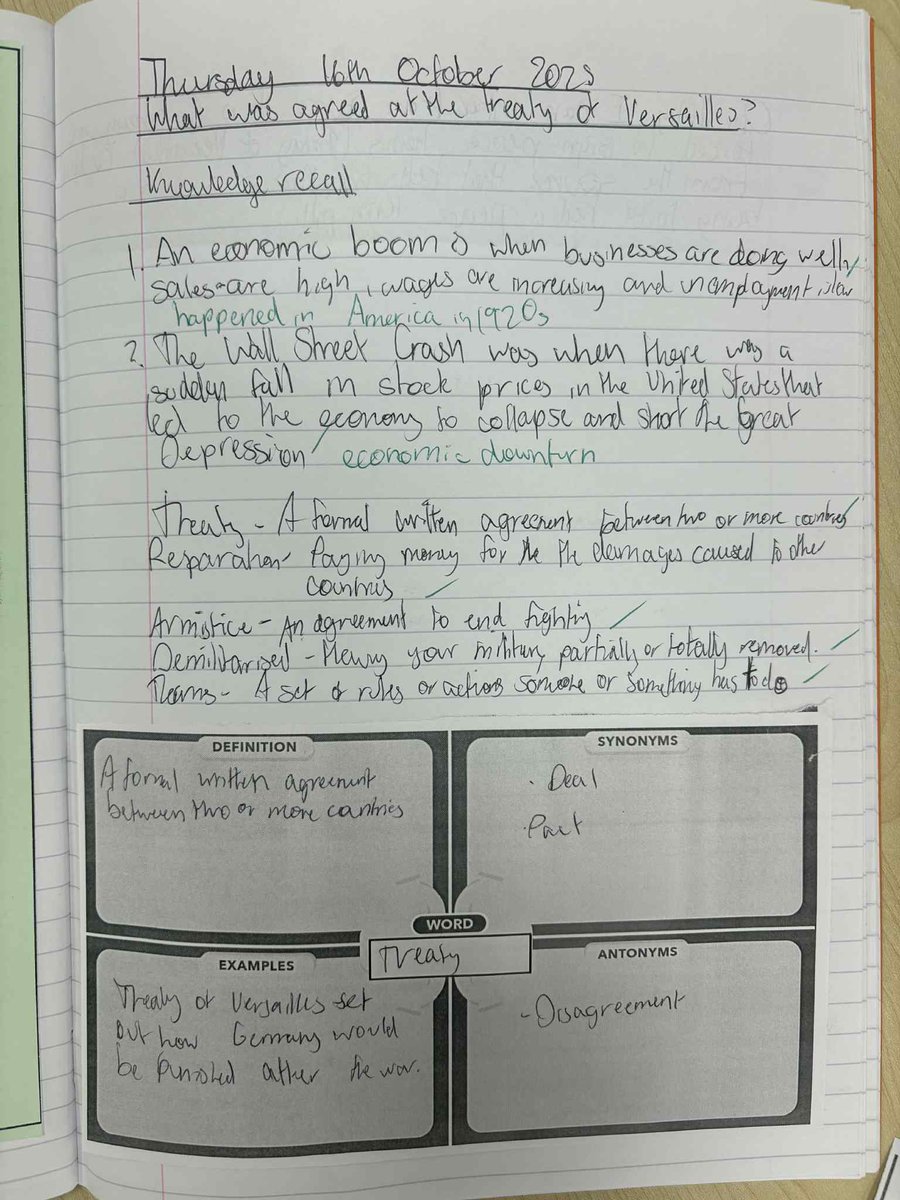 Thursday 16th October 2025
What was agreed at the treaty of Versailles?
Knowledge recall
1. An economic boom is when businesses are doing well,
sales are high, wages are increasing and unemployment is low
happened in America in 1920s
2. The Wall Street Crash was when there was a
sudden fall in stock prices in the United States that
led to the economy to collapse and start the Great
Depression economic downturn
Treaty - A formal written agreement between two or more countries
Reparation - Paying money for the the damages caused to other
countries
Armistice - An agreement to end fighting
Demilitarised - your military partially or totally removed.
Terms - A set of rules or actions someone or something has to do
DEFINITION
A formal written agreement
between two or more countries
SYNONYMS
· Deal
· Pact
WORD
Treaty
EXAMPLES
Treaty of Versailles set
out how Germany would
be punished after the war.
ANTONYMS
- Disagreement